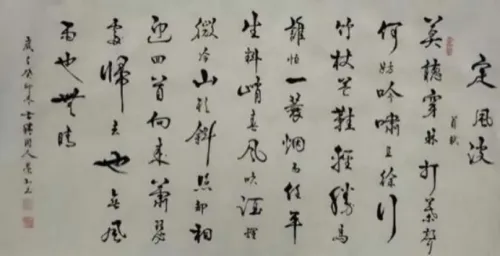 定風波
莫聽穿林打葉聲
何妨吟嘯且徐行
竹杖芒鞋輕勝馬
誰怕一蓑烟雨任平
生料峭春風吹酒醒
微冷山頭斜照却相
迎回首向來蕭瑟
處歸去也無風
雨也無晴
癸卯冬